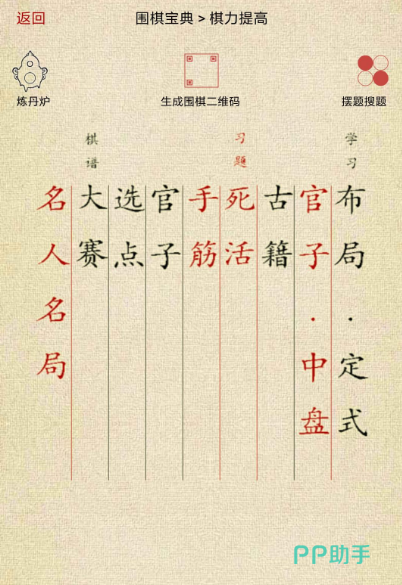 返回
围棋宝典 > 棋力提高
炼丹炉
生成围棋二维码
摆题搜题
学习
习题
棋谱
布局·定式
官子·中盘
古籍
死活
手筋
官子
选点
大赛
名人名局
PP助手